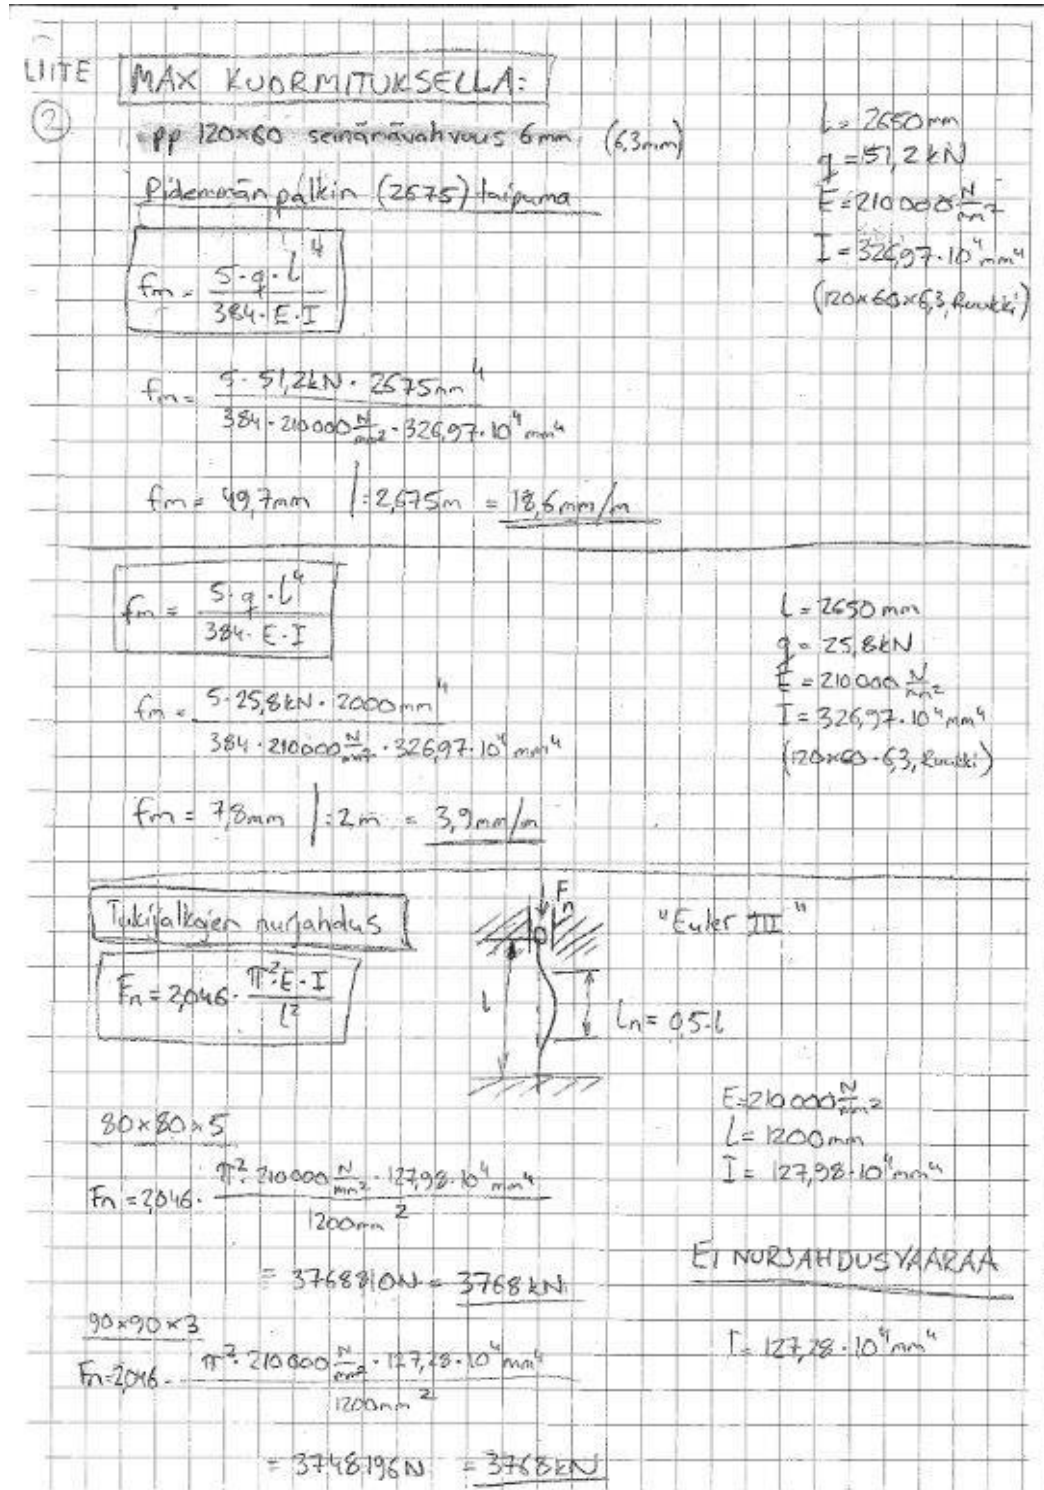 LIITE
2
MAX KUORMITUKSELLA:
pp 120×60 seinämävahvuus 6mm (6,3mm)
Pidemmän palkin (2675) taipuma
l = 2650 mm
q = 51,2 kN
E = 210 000 N/mm²
I = 326,97 · 10⁴ mm⁴
(120×60×6,3, Ruukki)
fm = 5·q·l⁴ / 384·E·I
fm = 5·51,2kN·2675mm⁴ / 384·210000 N/mm²·326,97·10⁴ mm⁴
fm = 49,7mm |:2,675m = 18,6mm/m
fm = 5·q·l⁴ / 384·E·I
l = 2650 mm
q = 25,8kN
E = 210000 N/mm²
I = 326,97·10⁴ mm⁴
(120×60·6,3, Ruukki)
fm = 5·25,8kN·2000mm⁴ / 384·210000 N/mm²·326,97·10⁴ mm⁴
fm = 7,8mm |:2m = 3,9mm/m
Tukijalkojen nurjahdus
Fn = 2,046 · π²·E·I / l²
Fn
l
Ln = 0,5·l
"Euler III"
E=210 000 N/mm²
L = 1200mm
I = 127,98·10⁴ mm⁴
80×80×5
Fn = 2,046 · π²·210000 N/mm²·127,98·10⁴ mm⁴ / 1200mm²
= 3768810N = 3768kN
EI NURJAHDUSVAARAA
90×90×3
I = 127,28·10⁴ mm⁴
Fn=2,046 · π²·210000 N/mm²·127,28·10⁴ mm⁴ / 1200mm²
= 3748196N = 3768kN